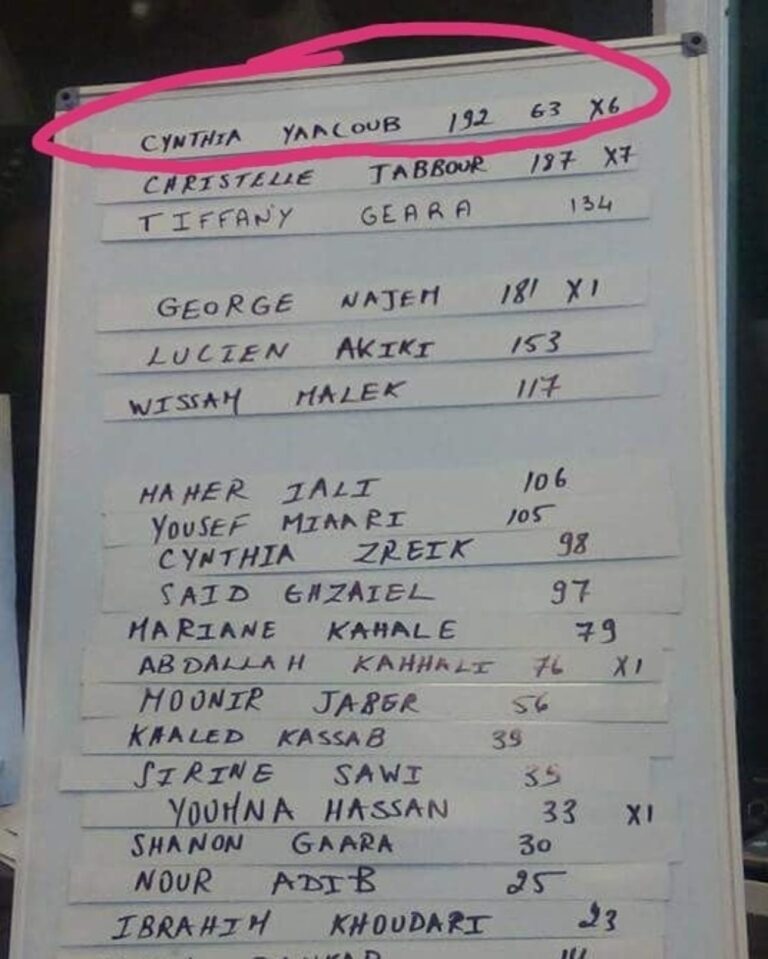 CYNTHIA YAACOUB 192 63 X6
CHRISTELLE TABBOUR 187 X7
TIFFANY GEARA 134
GEORGE NAJEM 181 X1
LUCIEN AKIKI 153
WISSAM MALEK 117
MAHER IALI 106
YOUSEF MIAARI 105
CYNTHIA ZREIK 98
SAID GHZAIEL 97
MARIANE KAHALE 79
ABDALLAH KAHHALI 76 X1
MOUNIR JABER 56
KHALED KASSAB 39
SIRINE SAWI 35
YOUMNA HASSAN 33 X1
SHANON GAARA 30
NOUR ADIB 25
IBRAHIM KHOUDARI 23